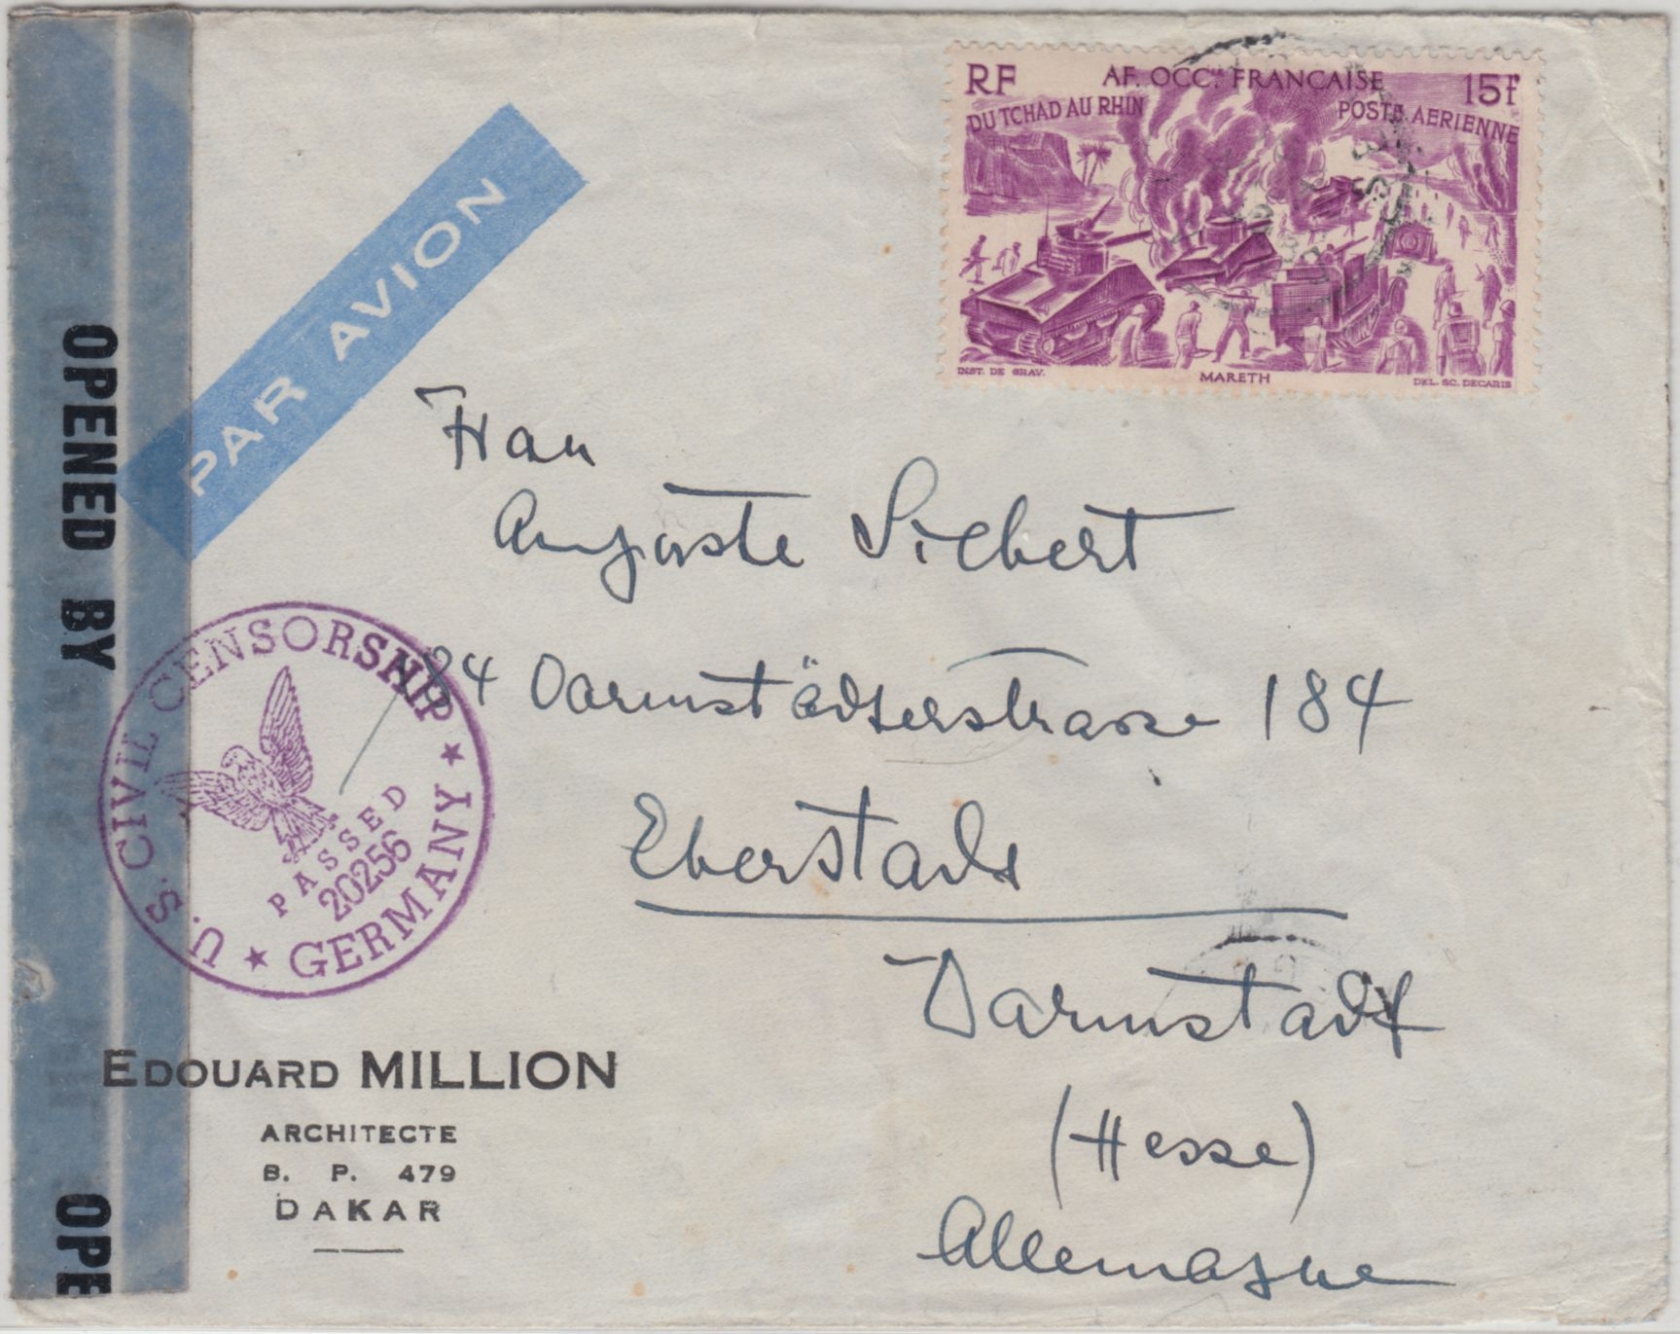 RF AF. OCC<sup>LE</sup>. FRANÇAISE 15f
DU TCHAD AU RHIN POSTE AERIENNE
INST. DE GRAV. MARETH DEL. SC. DECARIS
PAR AVION
OPENED BY
OPE
Frau
Auguste Siebert
Darmstädterstrasse 184
Eberstadt
Darmstadt
(Hesse)
Allemagne
U. S. CIVIL CENSORSHIP
PASSED
20256
GERMANY
EDOUARD MILLION
ARCHITECTE
B. P. 479
DAKAR